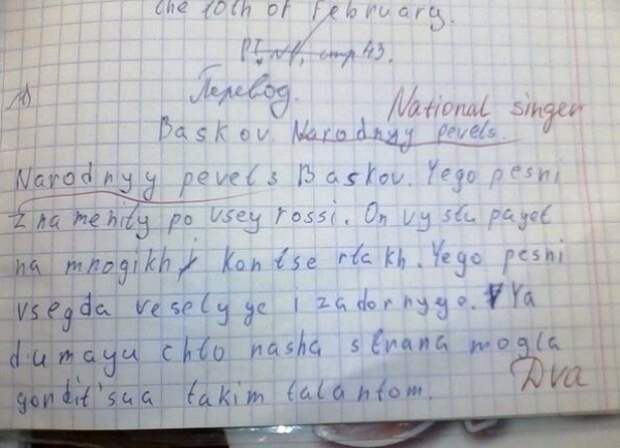 the 10th of February.
PI, N1, стр 43.
А)
Перевод.
National singer
Baskov. Narodnyy pevets.
Narodnyy pevets Baskov. Yego pesni
znamenity po vsey rossi. On vystupayet
na mnogikh kontsertakh. Yego pesni
vsegda veselyye i zadornyye. Ya
dumayu chto nasha strana mogla
gordit'sua takim talantom.
Dva